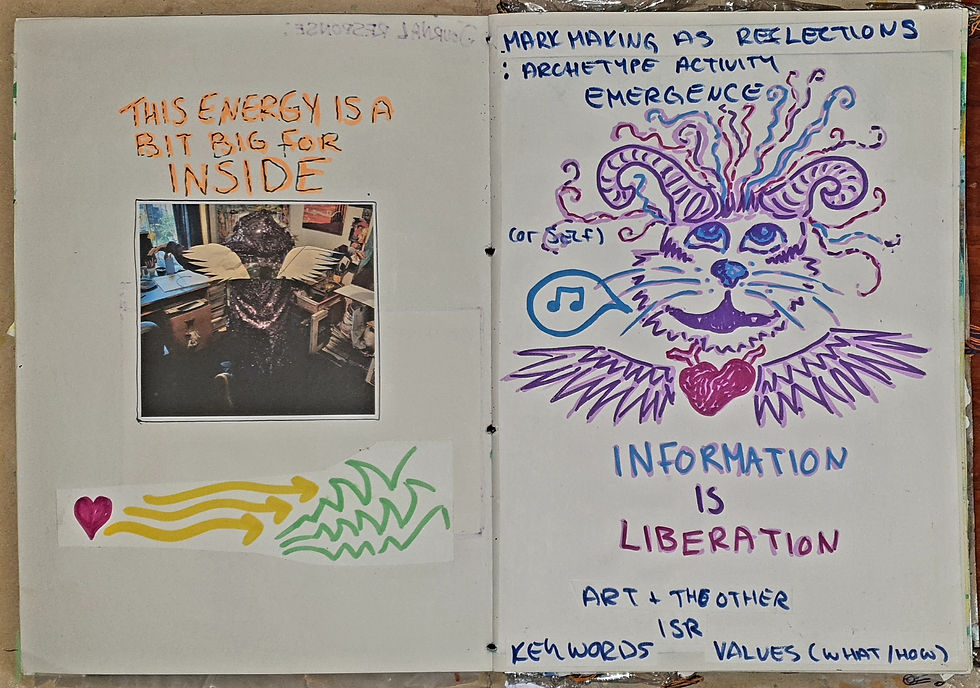 JOURNAL RESPONSE:
THIS ENERGY IS A
BIT BIG FOR
INSIDE
MARK MAKING AS REFLECTIONS
: ARCHETYPE ACTIVITY
EMERGENCE
(OF SELF)
INFORMATION
IS
LIBERATION
ART + THE OTHER
ISR
KEYWORDS VALUES (WHAT/HOW)